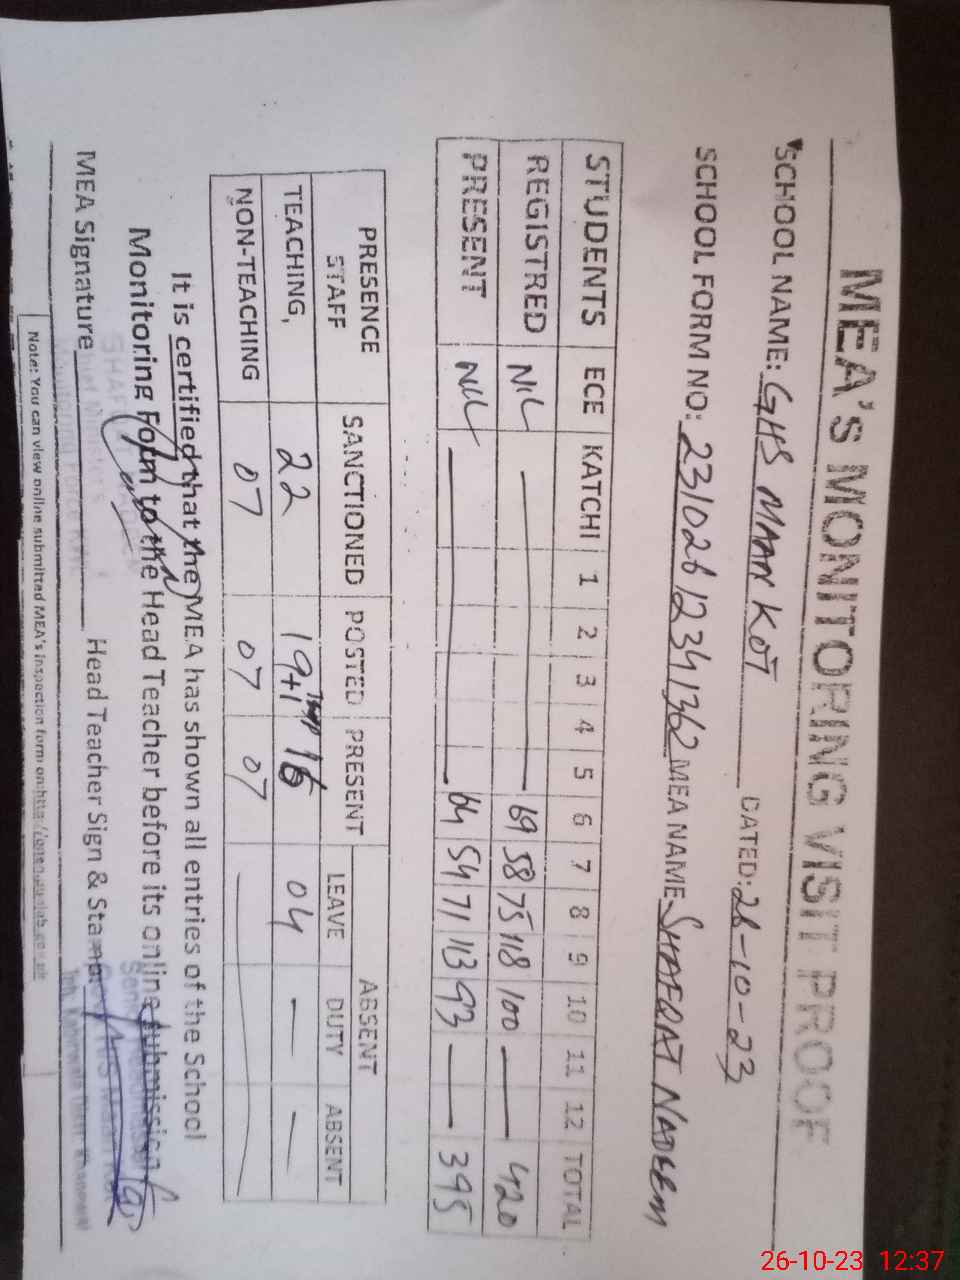 MEA's MONITORING VISIT PROOF
SCHOOL NAME: GHS MAAN KOT DATED: 26-10-23
SCHOOL FORM NO: 23102612341362 MEA NAME SHAFQAT NADEEM
STUDENTS ECE KATCHI 1 2 3 4 5 6 7 8 9 10 11 12 TOTAL
REGISTRED NIL — 69 58 75 118 100 — 420
PRESENT NIL — 64 54 71 113 93 — 395
PRESENCE STAFF SANCTIONED POSTED PRESENT ABSENT
LEAVE DUTY ABSENT
TEACHING, 22 19+1 16 04 — —
NON-TEACHING 07 07 07 —
It is certified that the MEA has shown all entries of the School
Monitoring Form to the Head Teacher before its online submission
MEA Signature Head Teacher Sign & Stamp
Note: You can view online submitted MEA's inspection form on:
26-10-23 12:37